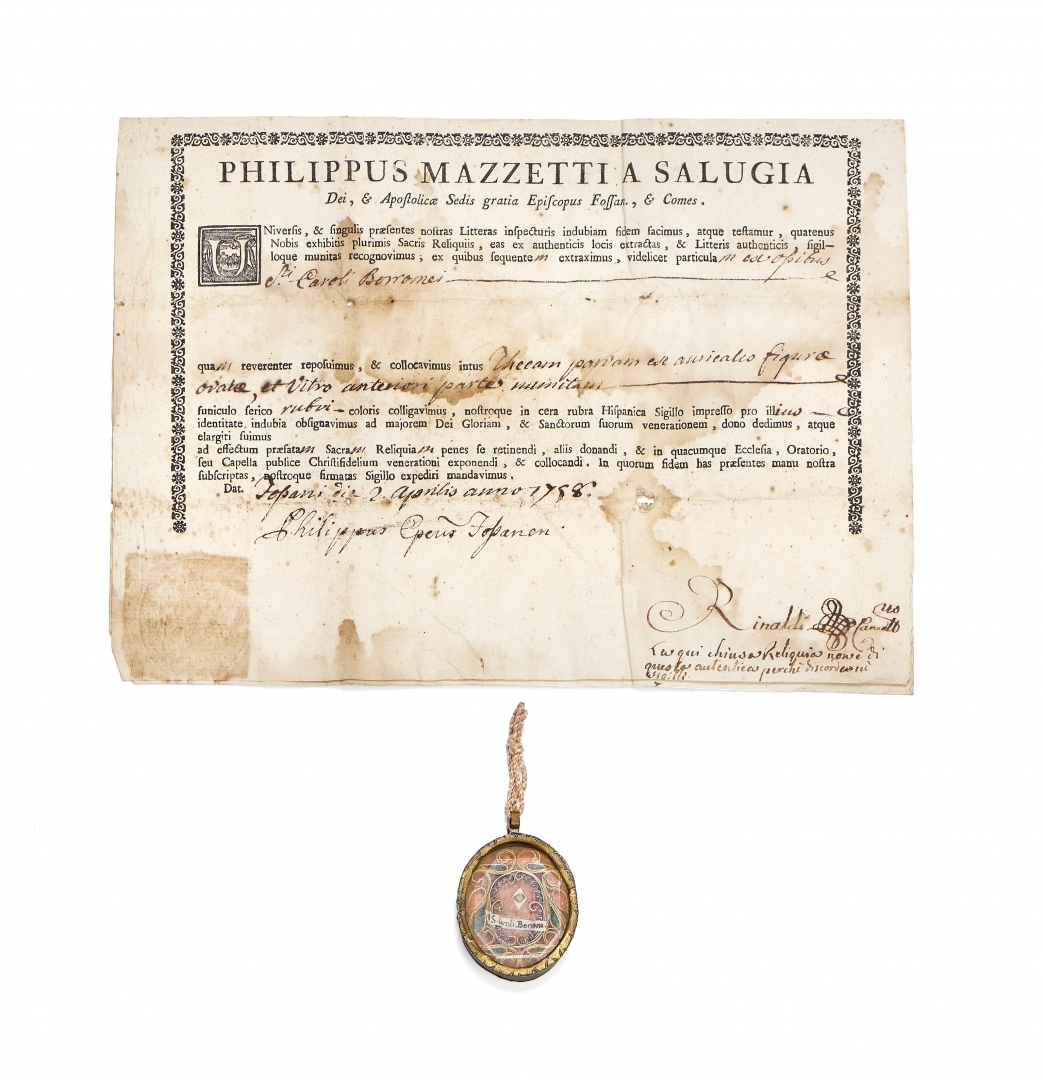 PHILIPPUS MAZZETTI A SALUGIA
Dei, & Apostolicæ Sedis gratia Episcopus Fossan., & Comes.
UNiversis, & singulis præsentes nostras Litteras inspecturis indubiam fidem facimus, atque testamur, quatenus
Nobis exhibitis plurimis Sacris Reliquiis, eas ex authenticis locis extractas, & Litteris authenticis, sigil-
loque munitas recognovimus; ex quibus sequentem extraximus, videlicet particulam ex ossibus
S.ti Caroli Borromei
quam reverenter reposuimus, & collocavimus intus Thecam parvam ex auricalco figuræ
ovatæ, et Vitro anteriori parte munitam
funiculo serico rubri coloris colligavimus, nostroque in cera rubra Hispanica Sigillo impresso pro illius
identitate indubia obsignavimus ad majorem Dei Gloriam, & Sanctorum suorum venerationem, dono dedimus, atque
elargiti suimus
ad effectum præfatam Sacram Reliquiam penes se retinendi, aliis donandi, & in quacumque Ecclesia, Oratorio,
seu Capella publice Christifidelium venerationi exponendi, & collocandi. In quorum fidem has præsentes manu nostra
subscriptas, nostroque firmatas Sigillo expediri mandavimus.
Dat. Fossani die 2. Aprilis anno 1758.
Philippus Epūs Fossanen:
Rinaldi
La qui chiusa Reliquia non è di
questa autentica perchè discordano i
sigilli
S. Caroli Borom.